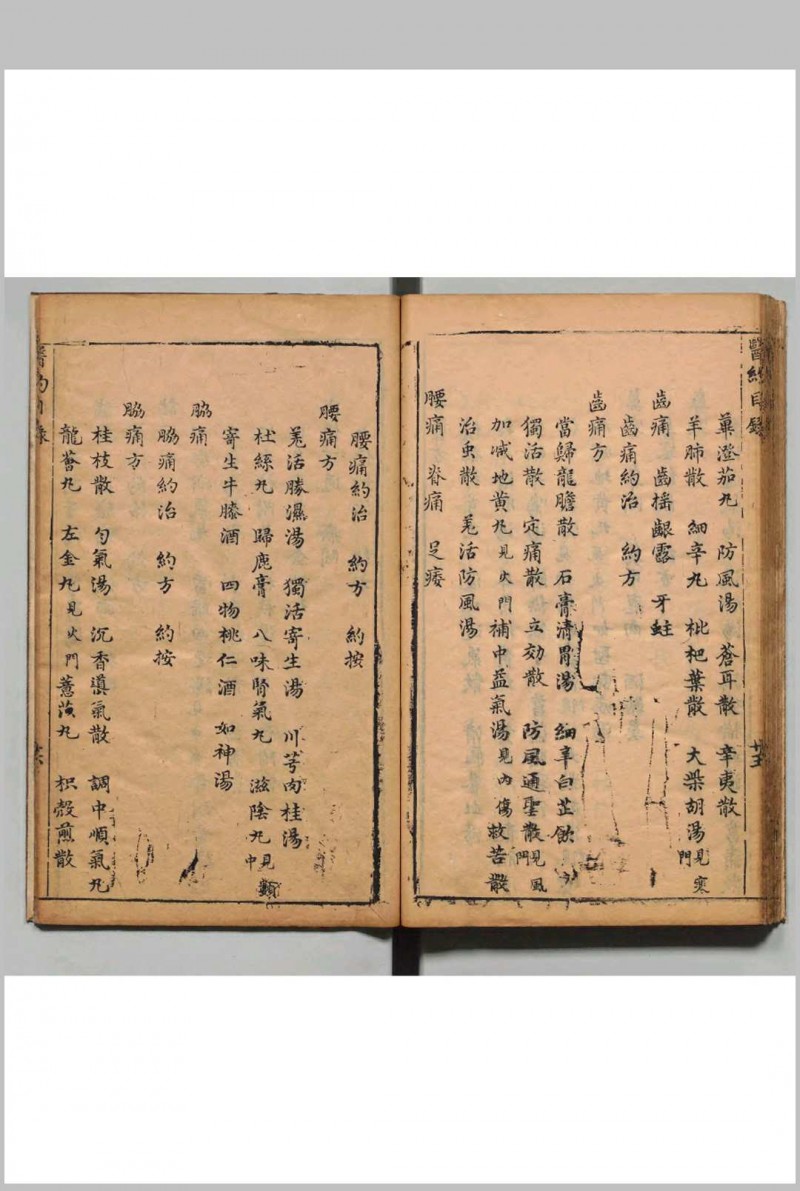 醫經目錄
廿五
蓽澄茄丸 防風湯 蒼耳散 辛夷散
羊肺散 細辛丸 枇杷葉散 大柴胡湯見寒門
齒痛 齒搖齦露 牙蛀
齒痛約治 約方
齒痛方
當歸龍膽散 石膏清胃湯 細辛白芷飲
獨活散 定痛散 立効散 防風通聖散見風門
加減地黃丸見火門 補中益氣湯見內傷 救苦散
治虫散 羌活防風湯
腰痛 脊痛 足痿
腰痛約治 約方 約按
腰痛方
羌活勝濕湯 獨活寄生湯 川芎肉桂湯
杜絲丸 歸鹿膏 八味腎氣丸 滋陰丸見類中
寄生牛膝酒 四物桃仁酒 如神湯
脇痛
脇痛約治 約方 約按
脇痛方
桂枝散 勻氣湯 沉香導氣散 調中順氣丸
龍薈丸 左金丸見火門 薏苡丸 枳殼煎散
目錄